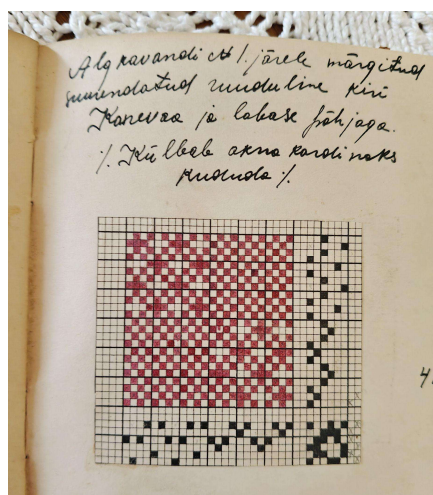 Algkavandi № 1. järele märgitud
suurendatud ruuduline kiri
Kanevaa ja labase põhjaga.
⁒ Kõlbab akna kardinaks
kududa ⁒
4